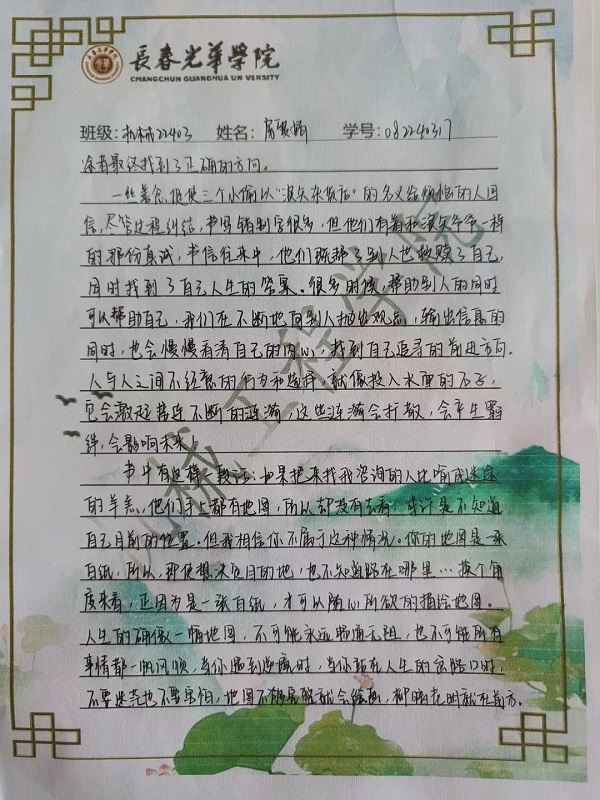 長春光华學院
CHANGCHUN GUANGHUA UN VERSITY
班级:机械22403 姓名: 学号:082240317
途者最终找到了正确的方向。
一丝善念,促使三个小偷以“浪矢杂货店”的名义给烦恼的人回
信,尽管过程纠结,书写错别字很多,但他们有着和浪矢爷爷一样
的那份真诚,书信往来中,他们既帮了别人也救赎了自己,
同时找到了自己人生的答案。很多时候,帮助别人的同时
可以帮助自己,我们在不断地向别人抛出观点,输出信息的
同时,也会慢慢看清自己的内心,找到自己追寻的前进方向。
人与人之间不经意的行为和选择,就像投入水面的石子,
它会激起接连不断的涟漪,这些涟漪会扩散,会产生羁
绊,会影响未来!
书中有这样一段话:如果把来找我咨询的人比喻成迷途
的羔羊,他们手上都有地图,所以却没有去看,或许是不知道
自己目前的位置。但我相信你不属于这种情况。你的地图是一张
白纸,所以,即使想决定目的地,也不知道路在哪里…换个角
度来看,正因为是一张白纸,才可以随心所欲的描绘地图。
人生的确像一幅地图,不可能永远畅通无阻,也不可能所有
事情都一帆风顺,当你遇到时,当你站在人生的岔路口时,
不要迷茫也不要害怕,地图不够就会绘画,柳暗花明就在前方。
机械工程学院